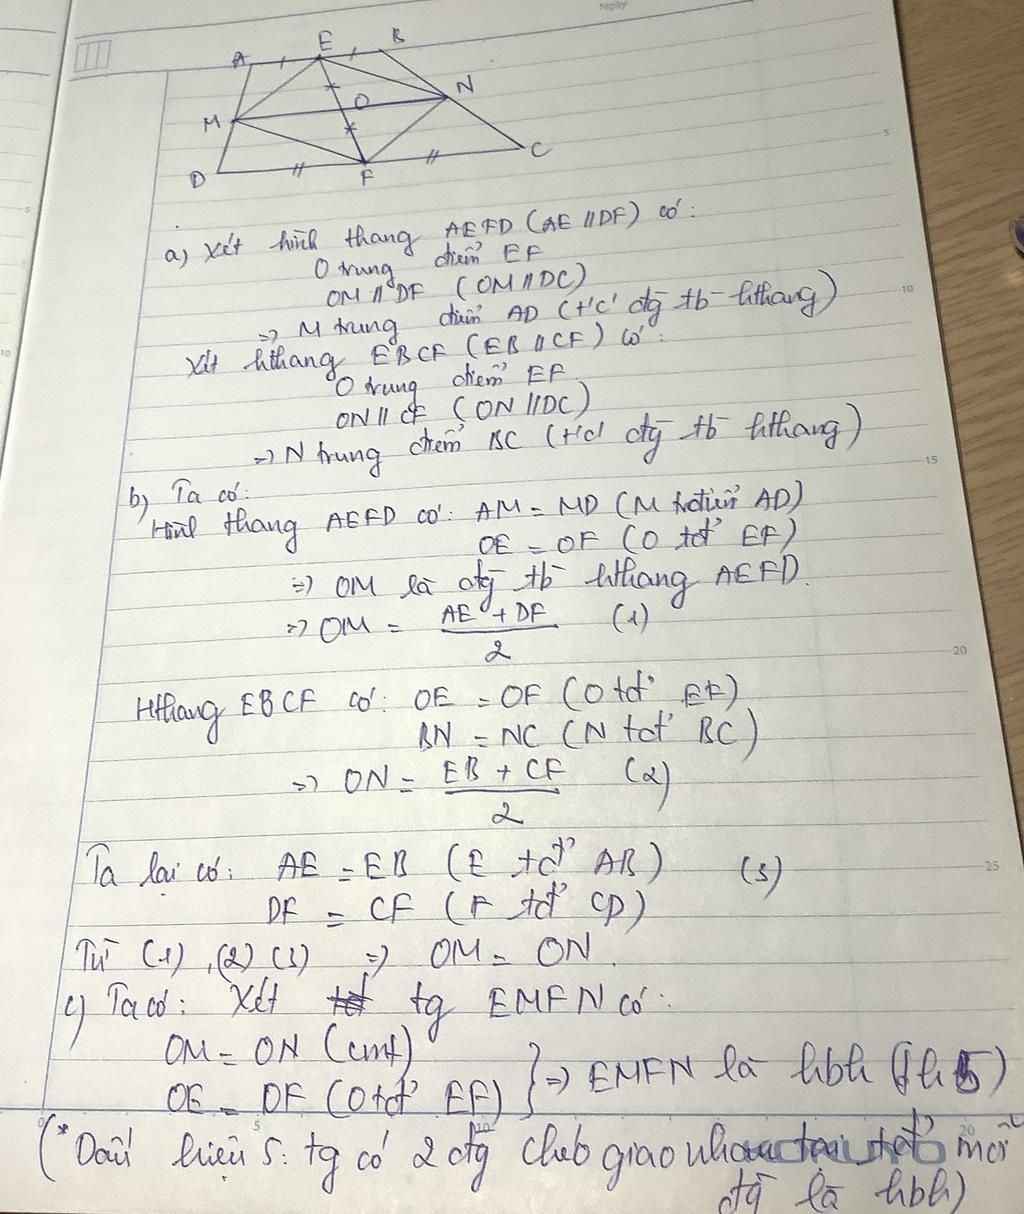 Ngày
A E B
M O N
D F C
a) Xét hình thang AEFD (AE // DF) có:
O trung điểm EF
OM // DF (OM // DC)
=> M trung điểm AD (t/c' đg tb hthang)
Xét hthang EBCF (EB // CF) có:
O trung điểm EF
ON // CF (ON // DC)
=> N trung điểm BC (t/c' đg tb hthang)
b) Ta có:
Hình thang AEFD có: AM = MD (M tđiểm AD)
OE = OF (O tđ' EF)
=> OM là đg tb hthang AEFD.
=> OM = (AE + DF)/2 (1)
Hthang EBCF có: OE = OF (O tđ' EF)
BN = NC (N tđ' BC)
=> ON = (EB + CF)/2 (2)
Ta lại có: AE = EB (E tđ' AB) (3)
DF = CF (F tđ' CD)
Từ (1), (2) (3) => OM = ON.
c) Ta có: Xét tg EMFN có:
OM = ON (cmt)
OE = OF (O tđ' EF) } => EMFN là hbh (dh 5)
(* Dấu hiệu 5: tg có 2 đg chéo giao nhau tại tđ' mỗi
đg là hbh)
5
10
15
20
25